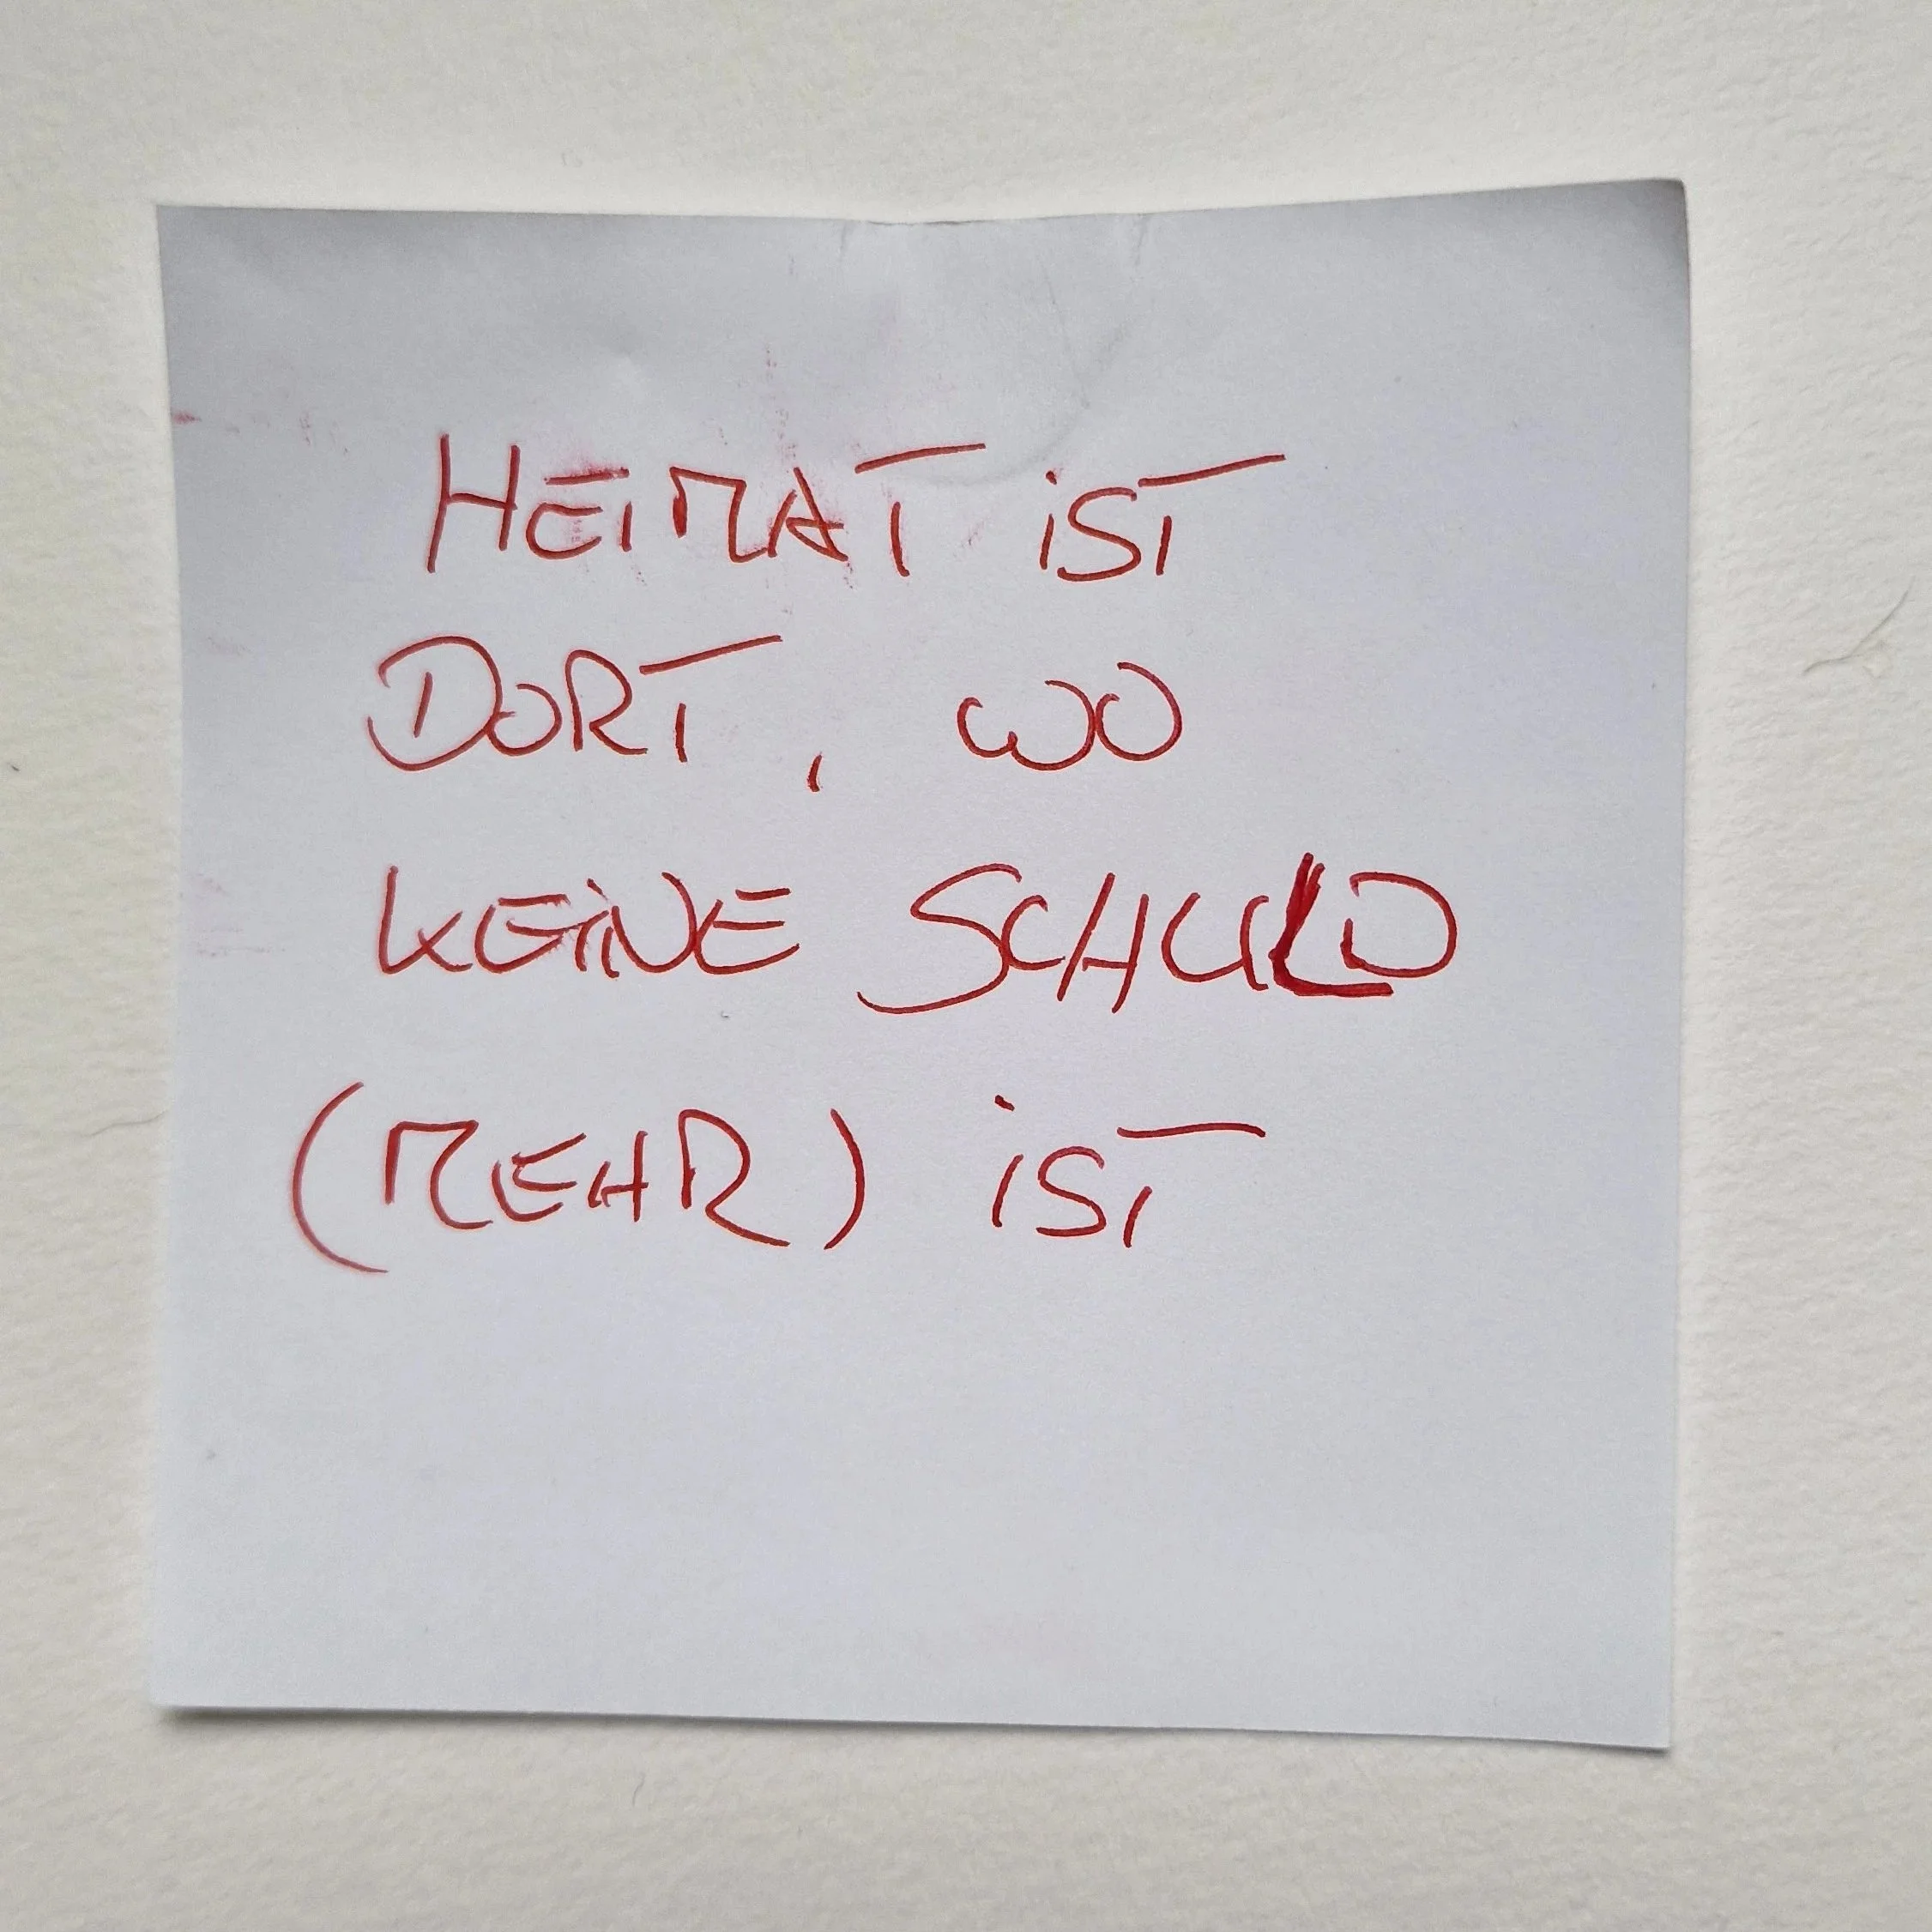 HEiMAT iST
DORT, WO
KEiNE SCHULD
(MEHR) iST